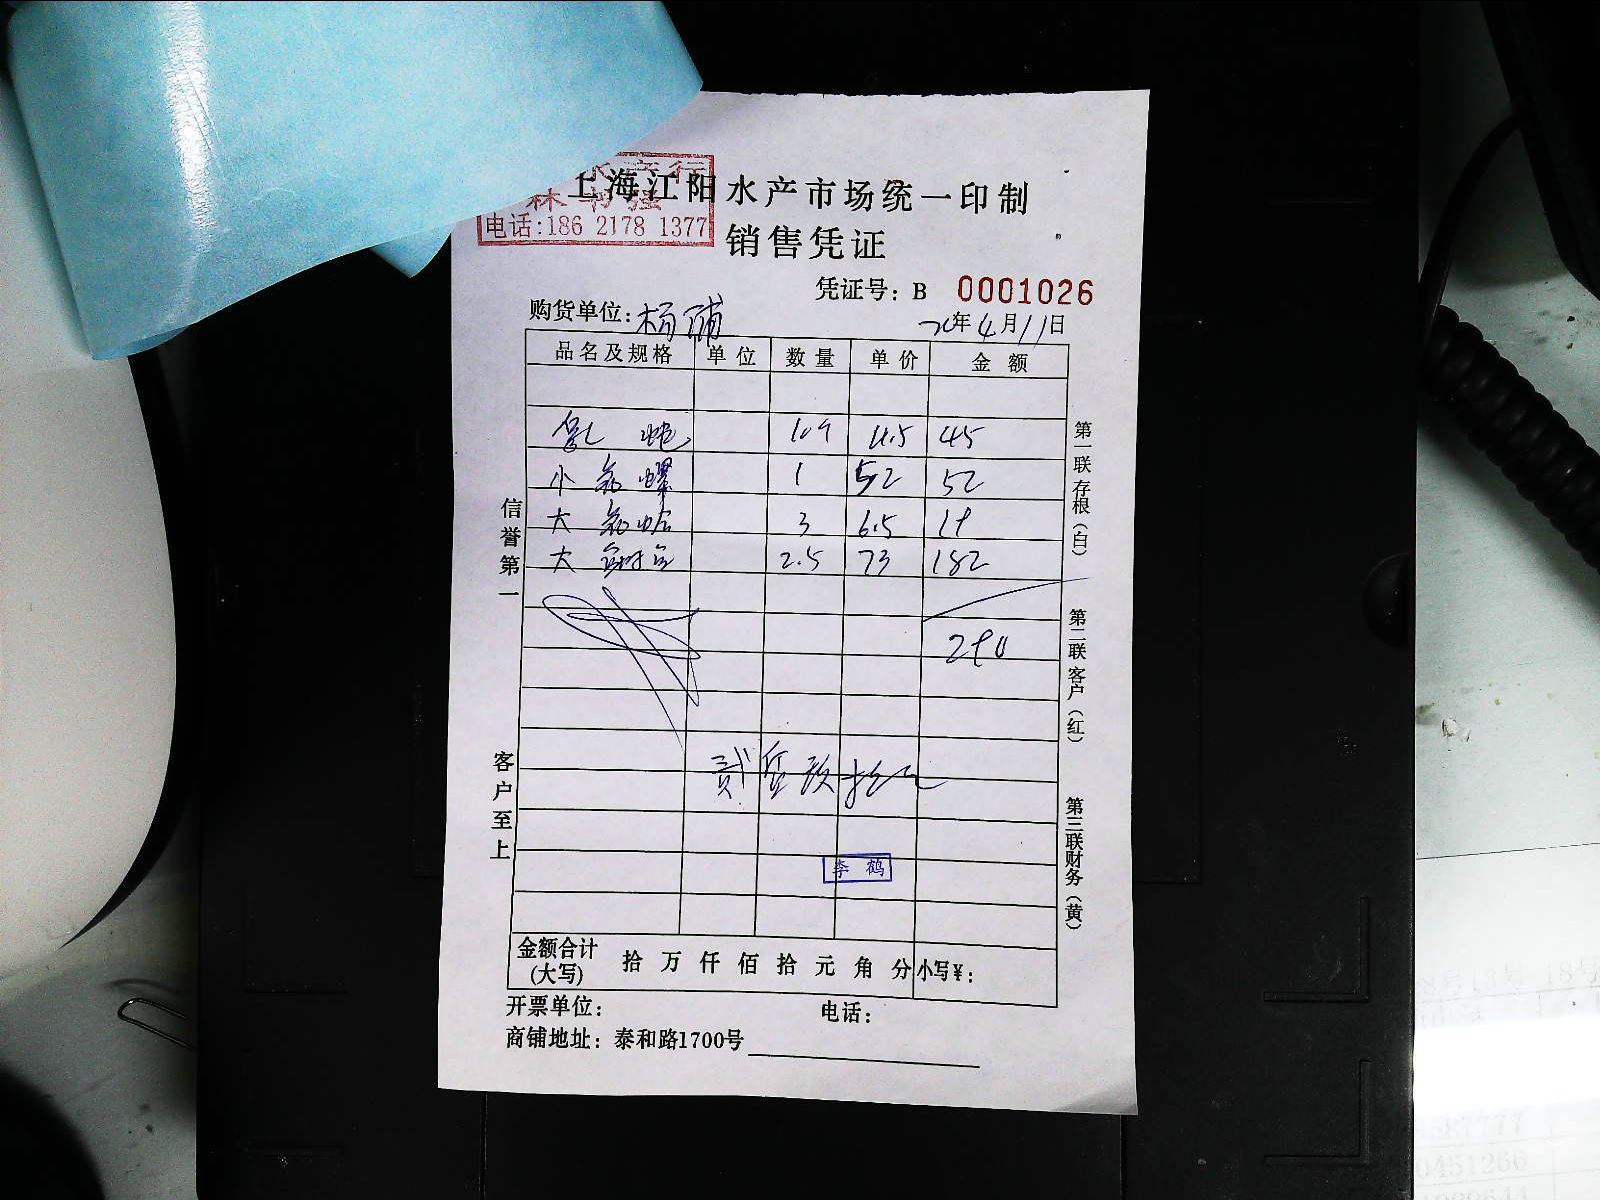 水产行
林书强
电话:186 2178 1377
上海江阳水产市场统一印制
销售凭证
凭证号: B 0001026
购货单位:杨浦
年4月11日
品名及规格 单位 数量 单价 金额
4.5 45
小 螺 1 52 52
大 3 6.5 19
大 2.5 73 182
290
贰佰玖拾元
李鹤
金额合计(大写) 拾 万 仟 佰 拾 元 角 分 小写¥:
开票单位: 电话:
商铺地址: 泰和路1700号
信誉第一
客户至上
第一联存根(白)
第二联客户(红)
第三联财务(黄)